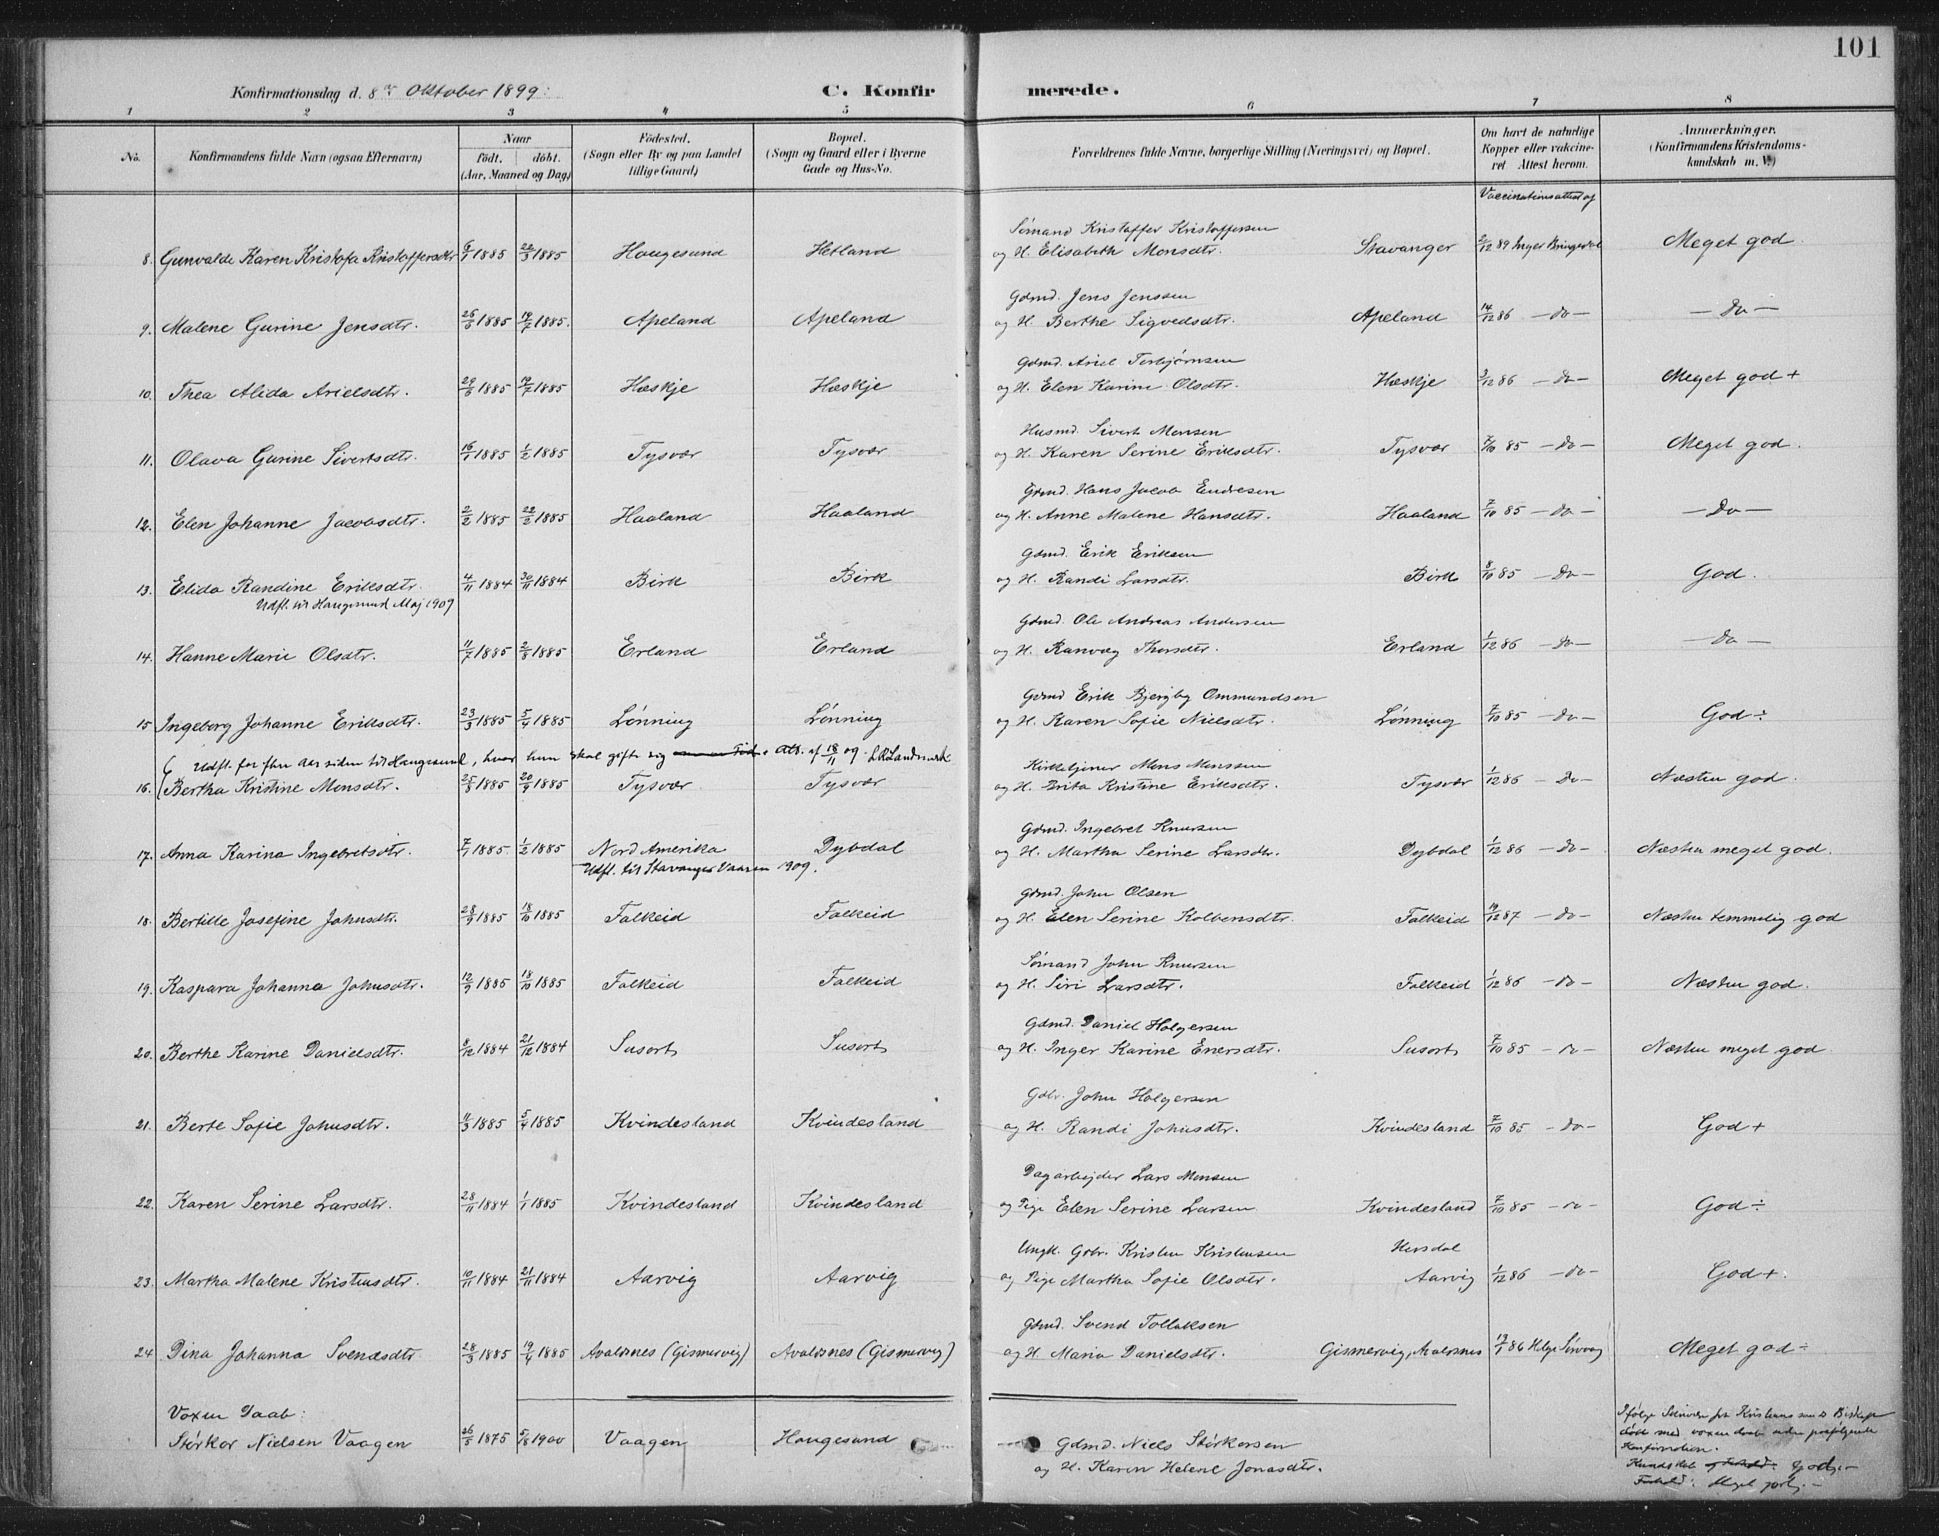 101
Konfirmationsdag d. 8de Oktober 1899.
C. Konfirmerede.
1 2 3 4 5 6 7 8
No. Konfirmandens fulde Navn (ogsaa Efternavn) Naar født. døbt. (Aar, Maaned og Dag) Fødested. (Sogn eller By og paa Landet tillige Gaard) Bopæl. (Sogn og Gaard eller i Byerne Gade og Hus-No. Forældrenes fulde Navne, borgerlige Stilling (Næringsvei) og Bopæl. Om havt de naturlige Kopper eller vakcineret Attest herom. Anmærkninger. (Konfirmandens Kristendomskundskab m. V.)
Vaccinationsattest af
Sømand Kristoffer Kristoffersen
8. Gunvalde Karen Kristofa Kristoffersdtr 6/1 1885 22/3 1885 Haugesund Hetland og H. Elisabeth Monsdtr. Stavanger 2/12 89 Inger Bringedal Meget god
Gdmd. Jens Jenssen
9. Malene Gurine Jensdtr. 26/6 1885 19/7 1885. Apeland Apeland og H. Berthe Sigvedsdtr. Apeland 14/12 86 - do - - Do -
Gdmd. Ariel Torbjørnsen
10. Thea Alida Arielsdtr. 29/6 1885 19/7 1885 Hæskje Hæskje og H. Elen Karine Olsdtr. Hæskje 3/12 86 - do - Meget god +
Husmd. Sivert Monsen
11. Olava Gurine Sivertsdtr. 16/1 1885 1/2 1885 Tysvær Tysvær og H. Karen Serine Eriksdtr. Tysvær 7/10 85 - do - Meget god.
Gdmd. Hans Jacob Endresen
12. Elen Johanne Jacobsdtr. 2/2 1885 22/2 1885 Haaland Haaland og H. Anne Malene Hansdtr. Haaland 7/10 85 - do - - Do -
Gdmd. Erik Eriksen
13. Elida Randine Eriksdtr. 4/11 1884 30/11 1884 Birk Birk og H. Randi Larsdtr. Birk 8/10 85 - do - God.
Udfl. til Haugesund Maj 1909
Gdmd. Ole Andreas Andersen
14. Hanne Marie Olsdtr. 11/7 1885 2/8 1885 Erland Erland og H. Ranvæg Thorsdtr. Erland 1/12 86 - do - - do -
Gdmd Erik Bjergby Ommundsen
15 Ingeborg Johanne Eriksdtr. 23/3 1885 5/4 1885 Lønning Lønning og H. Karen Sofie Nielsdtr. Lønning 7/10 85 - do - God ÷
Udfl. for flere Aar siden til Haugesund, hvor hun skal gifte sig Att. af 18/11 09. Landmark
Kirketjener Mons Monssen
16. Bertha Kristine Monsdtr. 25/8 1885 20/9 1885 Tysvær Tysvær og H. Brita Kristine Eriksdtr. Tysvær 1/12 86 - do - Næsten god.
Gdmd. Ingebret Knutsen
17. Anna Karina Ingebretsdtr. 7/1 1885. 1/2 1885 Nord Amerika Dybdal og H. Martha Serine Larsdtr. Dybdal 1/12 86 - do - Næsten meget god.
Udfl. til Stavanger Vaaren 1909.
Gdmd. John Olsen
18. Bertille Josefine Johnsdtr. 28/9 1885 18/10 1885 Falkeid Falkeid og H. Elen Serine Kolbensdtr. Falkeid 19/12 87 - do - Næsten temmelig god
Sømand John Knutsen
19. Kaspara Johanna Johnsdtr. 12/9 1885 18/10 1885 Falkeid Falkeid og H. Siri Larsdtr. Falkeid 1/12 86 - do - Næsten god.
Gdmd. Daniel Holgersen
20. Berthe Karine Danielsdtr. 8/12 1884 21/12 1884 Susort Susort og H. Inger Karine Enersdtr. Susort 7/10 85 - do - Næsten meget god.
Gdbr. John Holgersen
21. Berte Sofie Johnsdtr. 11/3 1885 5/4 1885 Kvindesland Kvindesland og H. Randi Johnsdtr. Kvindesland 7/10 85 - do - God +
Dagarbejder Lars Monsen
22. Karen Serine Larsdtr. 28/11 1884 1/1 1885 Kvindesland Kvindesland og Pige Elen Serine Larsen Kvindesland 7/10 85 - do - God ÷
Ungk. Gdbr. Kristen Kristensen Hersdal
23. Martha Malene Kristensdtr. 10/11 1884 21/11 1884 Aarvig Aarvig og Pige Martha Sofie Olsdtr. Aarvig 1/12 86 - do - God +.
Gdmd. Svend Tollaksen
24 Dina Johanna Svendsdtr 28/3 1885 19/4 1885 Avaldsnes (Gismervig) Avaldsnes (Gismervig) og H. Maria Danielsdtr. Gismervig, Avaldsnes 13/1 86 Helge Sørvaag Meget god ÷
Voxen Daab:
Størkor Nielsen Vaagen 26/5 1875 5/8 1900 Vaagen Haugesund Gdmd. Niels Størkorsen
og H. Karen Helene Jonasdtr.
Ifølge Skrivelse fra Kristianssands Biskop
døbt med voxen daab uden paafølgende
Konfirmation.
Kundskab god. -
Forhold: Meget